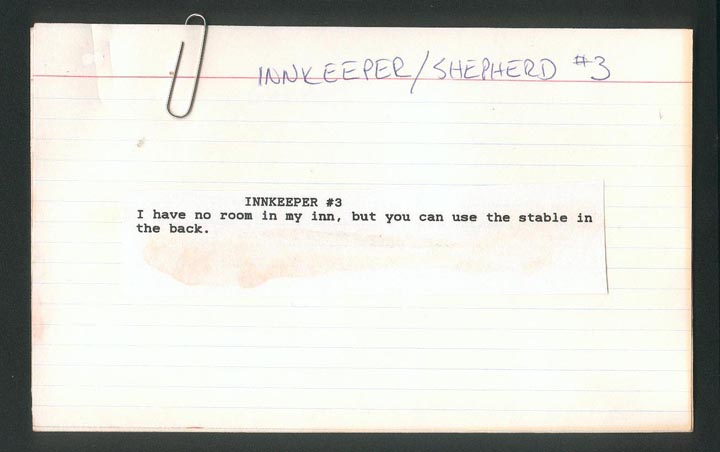 INNKEEPER/SHEPHERD #3
INNKEEPER #3
I have no room in my inn, but you can use the stable in
the back.